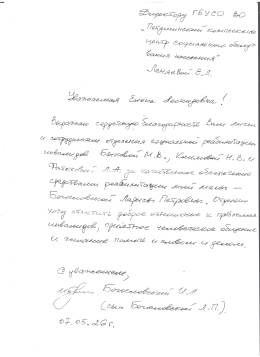 Директору ГБУСО ВО
„Петушинский комплексный
центр социального обслу-
живания населения"
Леняевой Е.Л.
Уважаемая Елена Леонидовна!
Выражаю сердечную благодарность Вам лично
и сотрудникам отделения социальной реабилитации
инвалидов Быковой М.В., Киселевой Н.В. и
Л.А. за качественное обеспечение
средствами реабилитации моей мамы –
Богословской Ларисы Петровны. Отдельно
хочу отметить доброе отношение к проблемам
инвалидов, приятное человеческое общение
и желание помочь и словом и делом.
С уважением,
Богословский И.А.
(сын Богословской Л.П.).
07.05.26г.